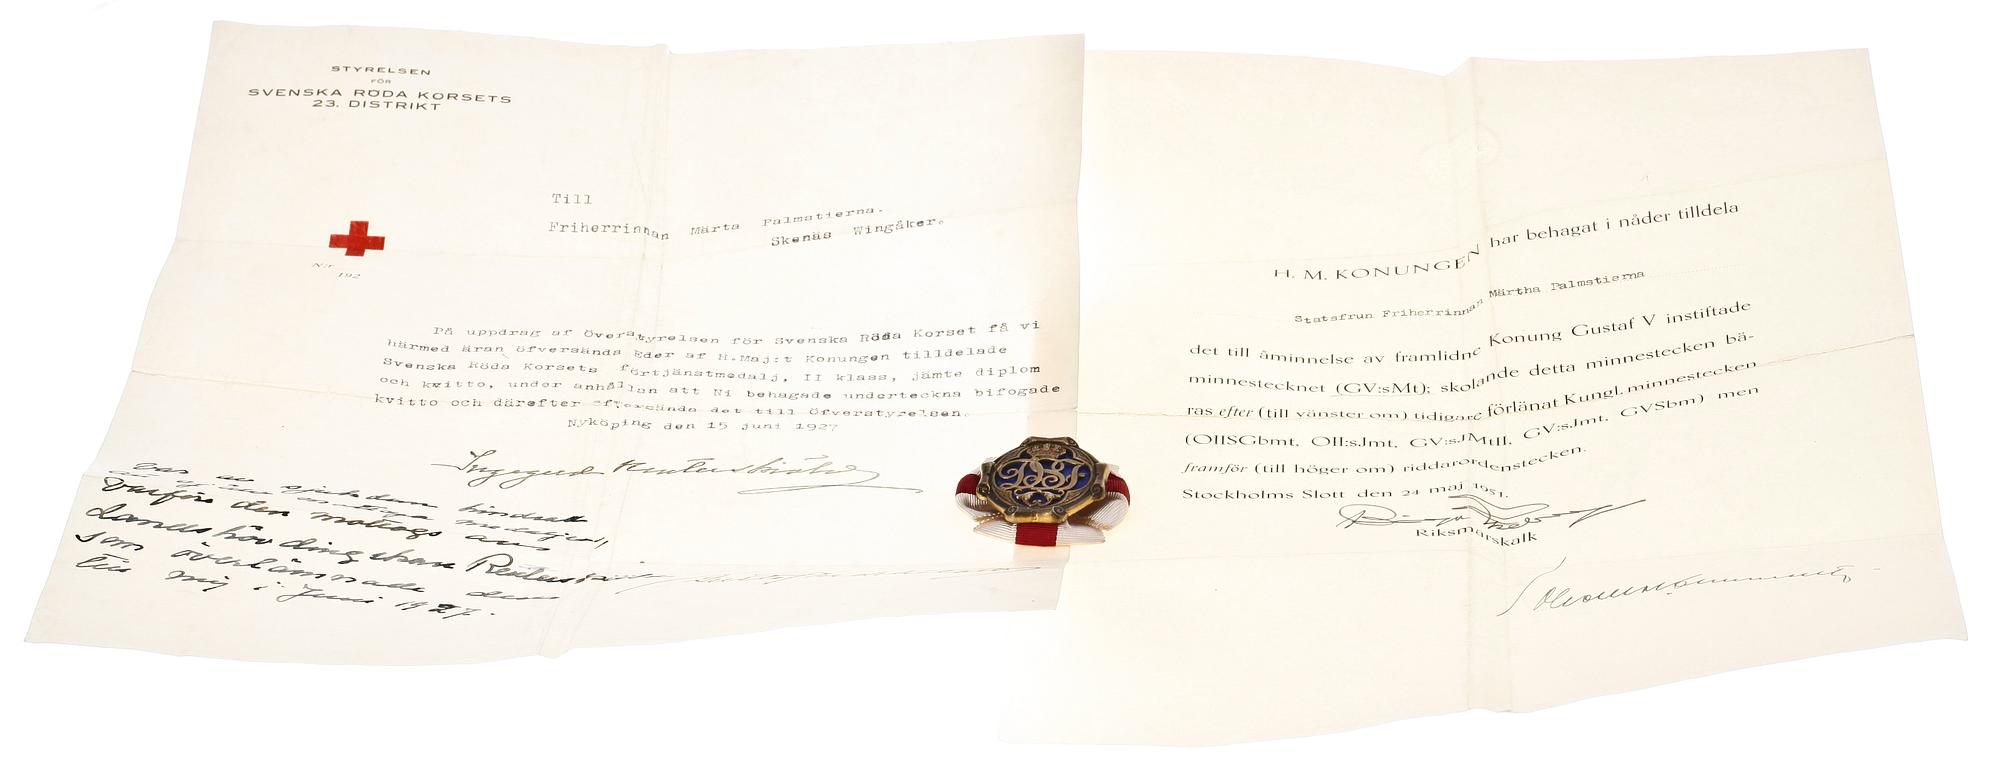 STYRELSEN
FÖR
SVENSKA RÖDA KORSETS
23. DISTRIKT
N:r
192
Till
Friherrinnan Märta Palmstierna.
Skenäs Wingåker.
På uppdrag af Överstyrelsen för Svenska Röda Korset få vi
härmed äran öfversända Eder af H.Maj:t Konungen tilldelade
Svenska Röda Korsets förtjänstmedalj, II klass, jämte diplom
och kvitto, under anhållan att Ni behagade underteckna bifogade
kvitto och därefter öfversända det till Öfverstyrelsen.
Nyköping den 15 juni 1927
Ingegerd
var sjukdom hindrade
därför den mottogs av
landshövdingskan
som överlämnade den
till mig i Juni 1927.
H. M. KONUNGEN har behagat i nåder tilldela
Statsfrun Friherrinnan Märtha Palmstierna
det till åminnelse av framlidne Konung Gustaf V instiftade
minnestecknet (GV:sMt); skolande detta minnestecken bä-
ras efter (till vänster om) tidigare förlänat Kungl. minnestecken
(OIISGbmt, OII:sJmt, GV:sJMtII, GV:sJmt, GVSbm) men
framför (till höger om) riddarordenstecken.
Stockholms Slott den 24 maj 1951.
Riksmarskalk